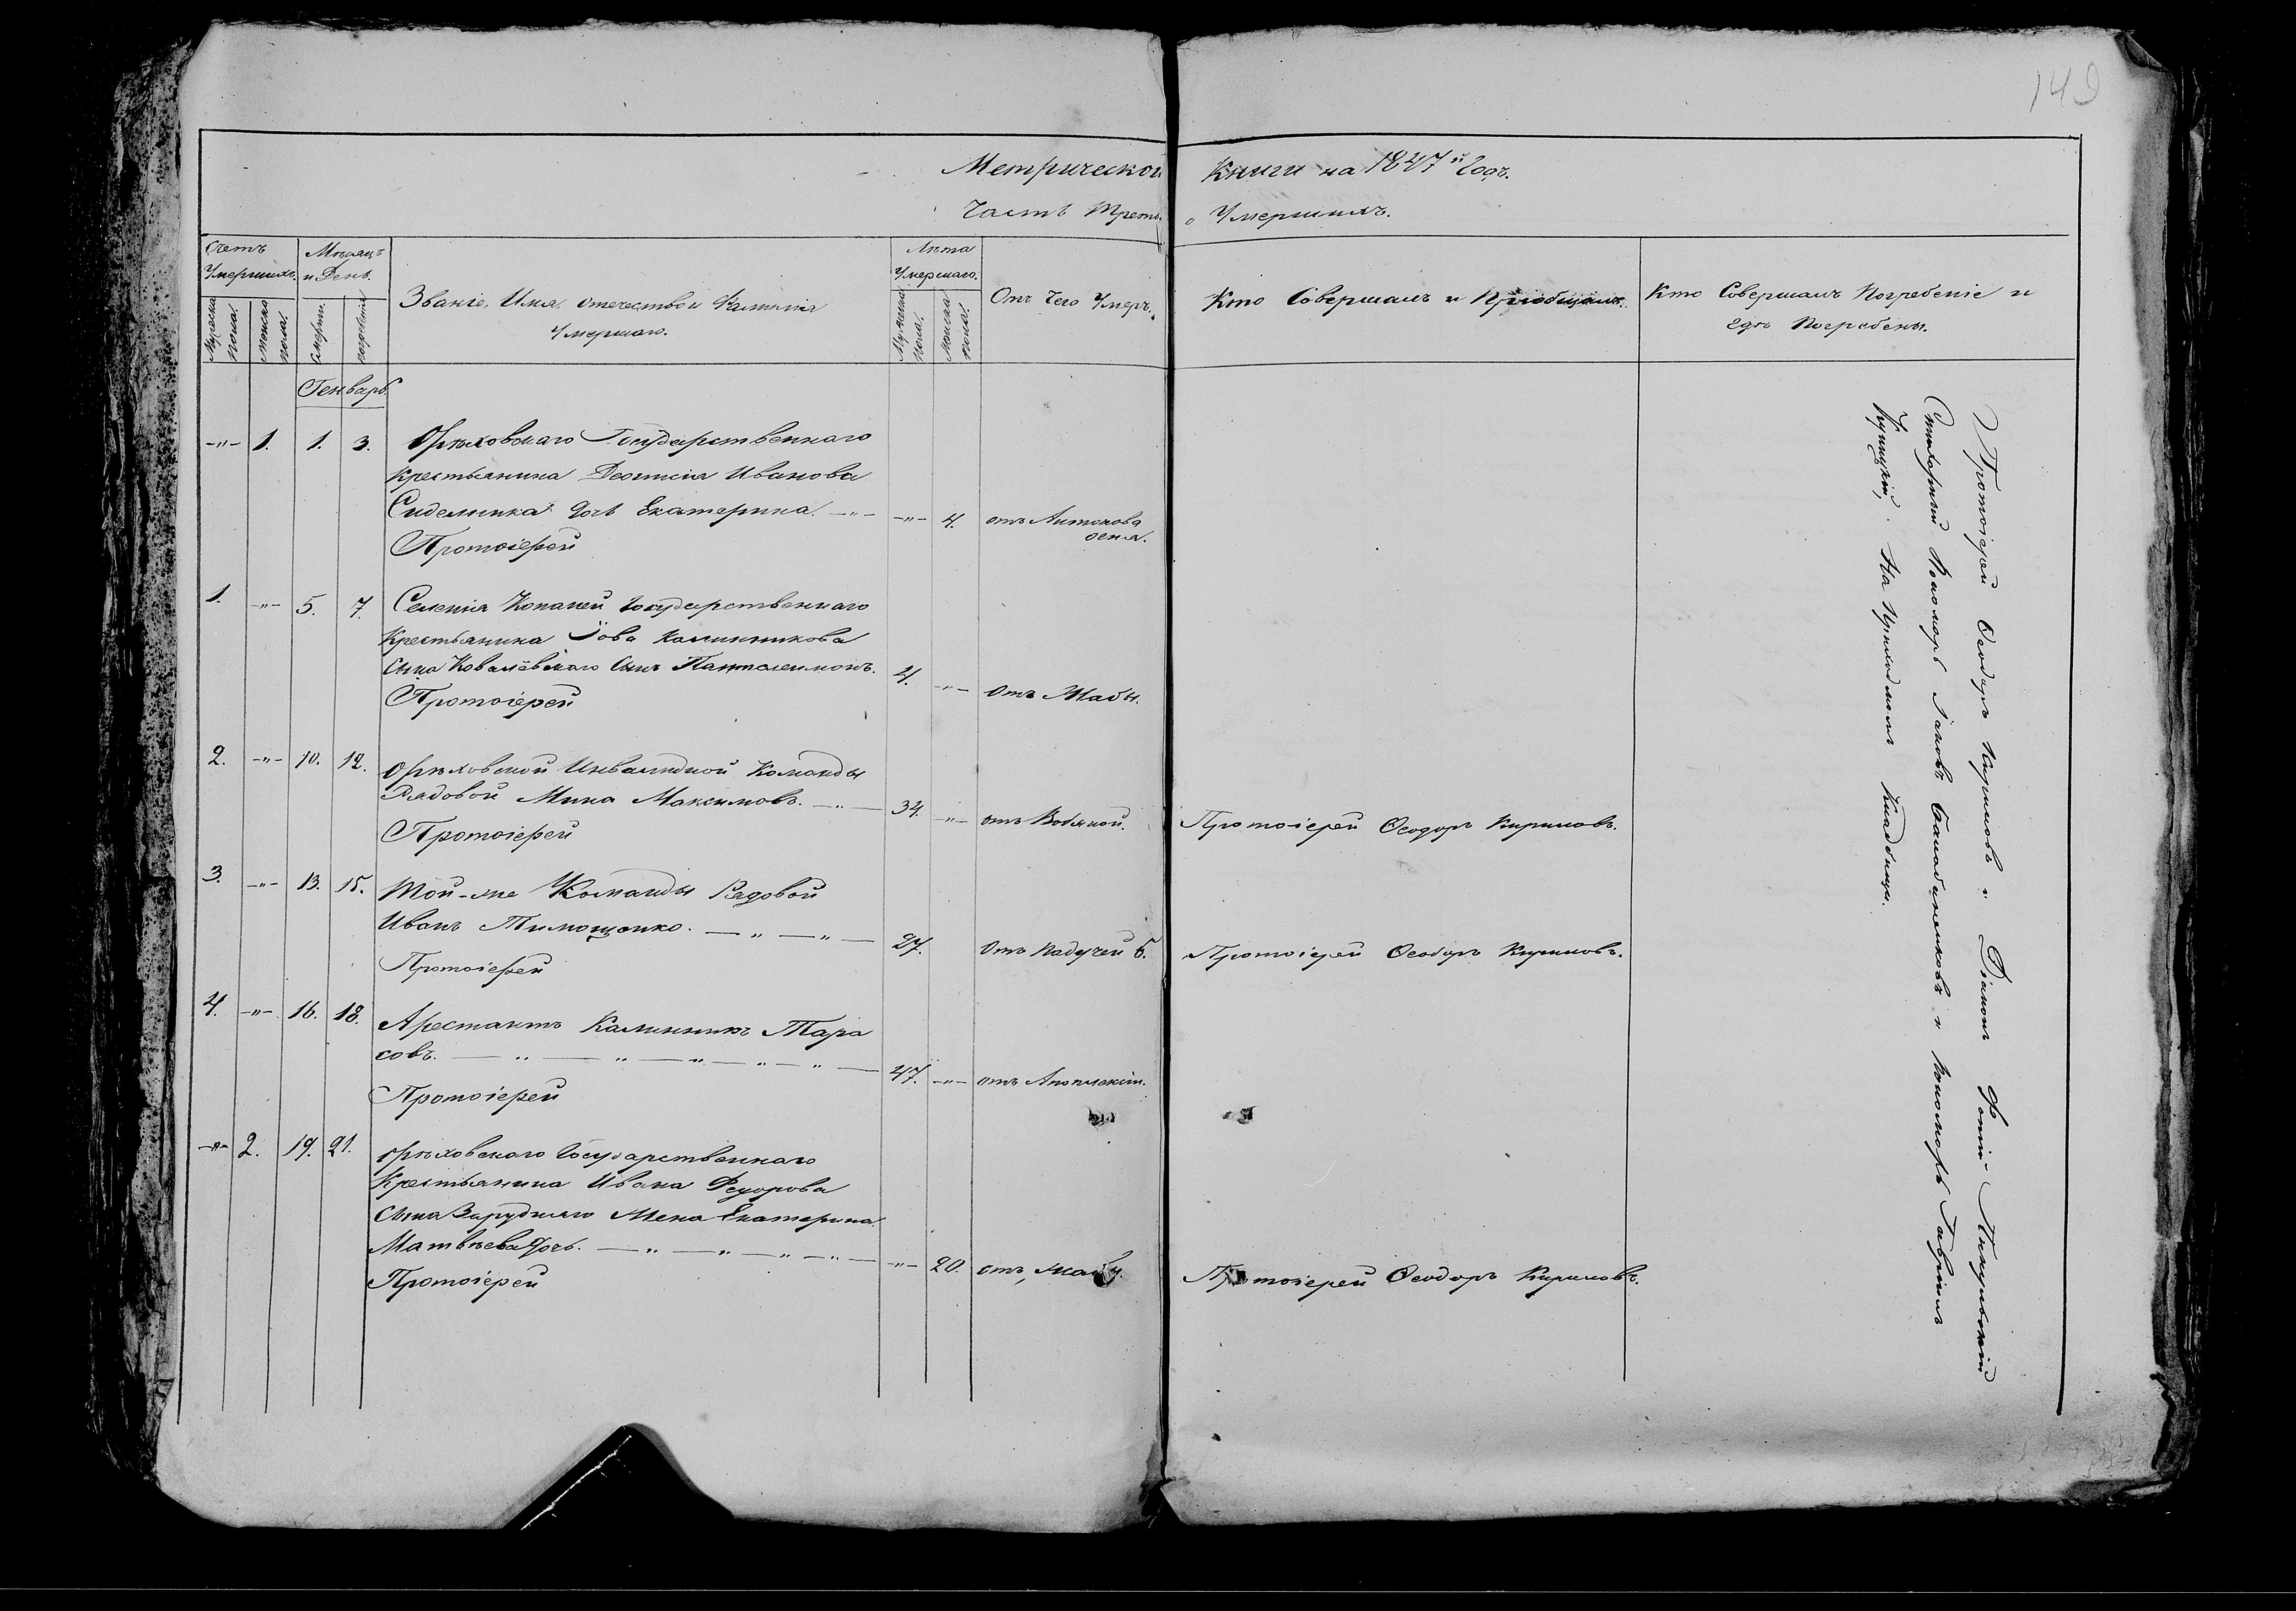 149
Метрической Книги на 1847й Годъ.
Часть Третья о Умершихъ.
Счетъ Умершихъ.
Мужеска пола.
Женска пола.
Мѣсяцъ и День.
Смерти.
погребенія
Званіе, Имя, отечество и Фамилія
Умершаго.
Лѣта Умершаго.
Мужеска пола.
Женска пола.
Отъ Чего Умеръ.
Кто Совершалъ и Пріобщалъ.
Кто Совершалъ Погребеніе и
гдѣ Погребены.
Генварь
-"- 1. 1. 3. Орѣховскаго Государственнаго
Крестьянина Деонисія Иванова
Сиделника дочь Екатерина. -"- -"- 4. отъ Антонова
огня.
Протоіерей
1. -"- 5. 7. Селенія Копаней Государственнаго
Крестьянина Іова Калинникова
Сына Ковалевскаго Сынъ Пантелеимонъ. 4. -"- Отъ Жабы.
Протоіерей
2. -"- 10. 12. Орѣховской Инвалидной Команды
Рядовой Мина Максимовъ. -"- 34. -"- отъ Водяной. Протоіерей Ѳеодоръ Кириловъ.
Протоіерей
3. -"- 13. 15. Той-же Команды Рядовой
Иванъ Тимощенко. -"-"- 27. Отъ Падучей б. Протоіерей Ѳеодоръ Кириловъ.
Протоіерей
4. -"- 16. 18. Арестантъ Калинникъ Тара
совъ. -"-"-"-"-"- 47. -"- отъ Апоплексіи.
Протоіерей
-"- 2. 19. 21. Орѣховскаго Государственнаго
Крестьянина Ивана Федорова
Сына Заруднаго Жена Екатерина
Матвѣева дочь. -"-"-"-"- -"- 20. отъ Жабы. Протоіерей Ѳеодоръ Кириловъ.
Протоіерей
Протоіерей Ѳеодоръ Кириловъ и Діаконъ Фотій
Стихарный Пономарь Іаковъ и Пономарь Гавріилъ
На Приходскомъ Кладбищѣ.